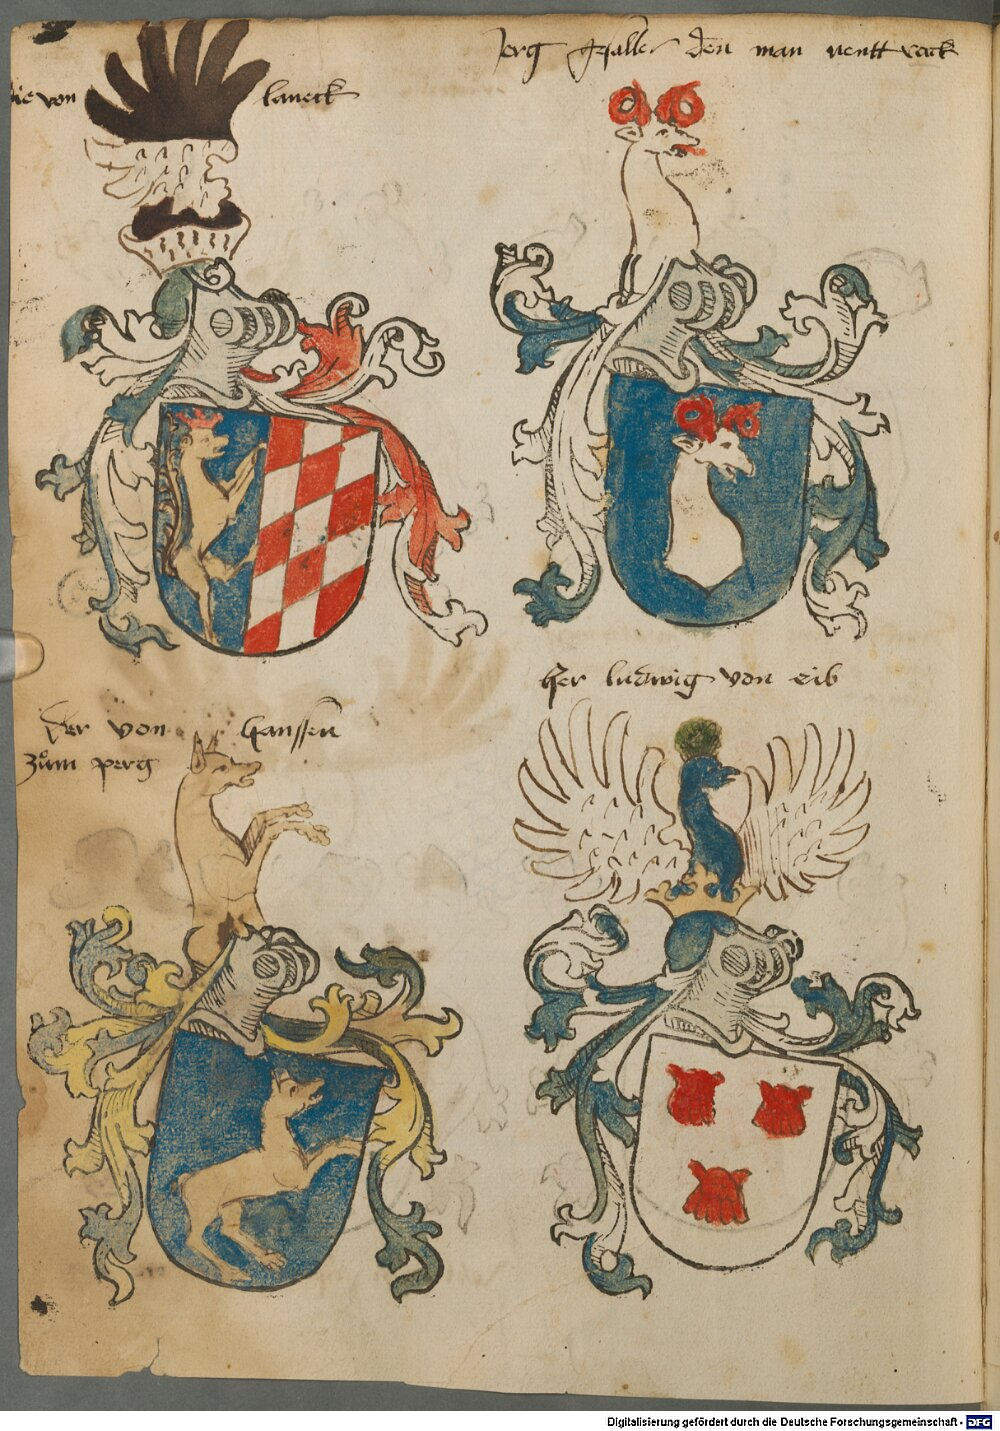 die von laneck
Jorg gesatler den man nentt reck
Her ludwig von eib
der von hanssen
zům perg
Digitalisierung gefördert durch die Deutsche Forschungsgemeinschaft - DFG